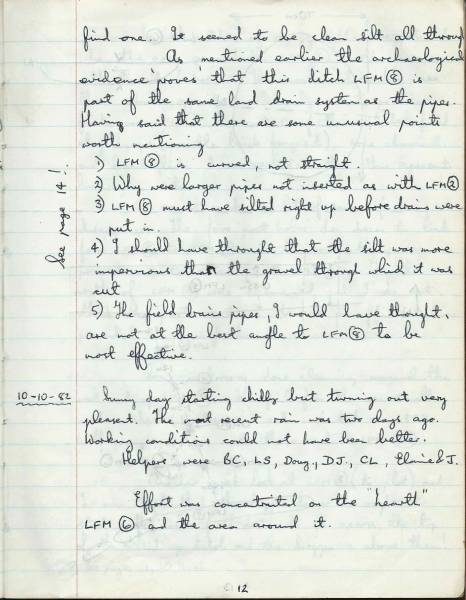 find one. It seemed to be clean silt all through
As mentioned earlier the archaeological
evidence 'proves' that this ditch LFM ⑧ is
part of the same land drain system as the pipes.
Having said that there are some unusual points
worth mentioning
1) LFM ⑧ is curved, not straight.
2) Why were larger pipes not inserted as with LFM ②
3) LFM ⑧ must have silted right up before drains were
put in.
4) I should have throught that the silt was more
impervious than the gravel through which it was
cut
5) The field drains pipes, I would have thought,
are not at the best angle to LFM ⑧ to be
most effective.
See page 14!.
10-10-82 Sunny day starting chilly but turning out very
pleasant. The most recent rain was two days ago.
Working conditions could not have been better.
Helpers were BC, LS, Doug, DJ, CL, Elaine & J.
Effort was concentrated on the "hearth"
LFM ⑥ and the area around it.
12